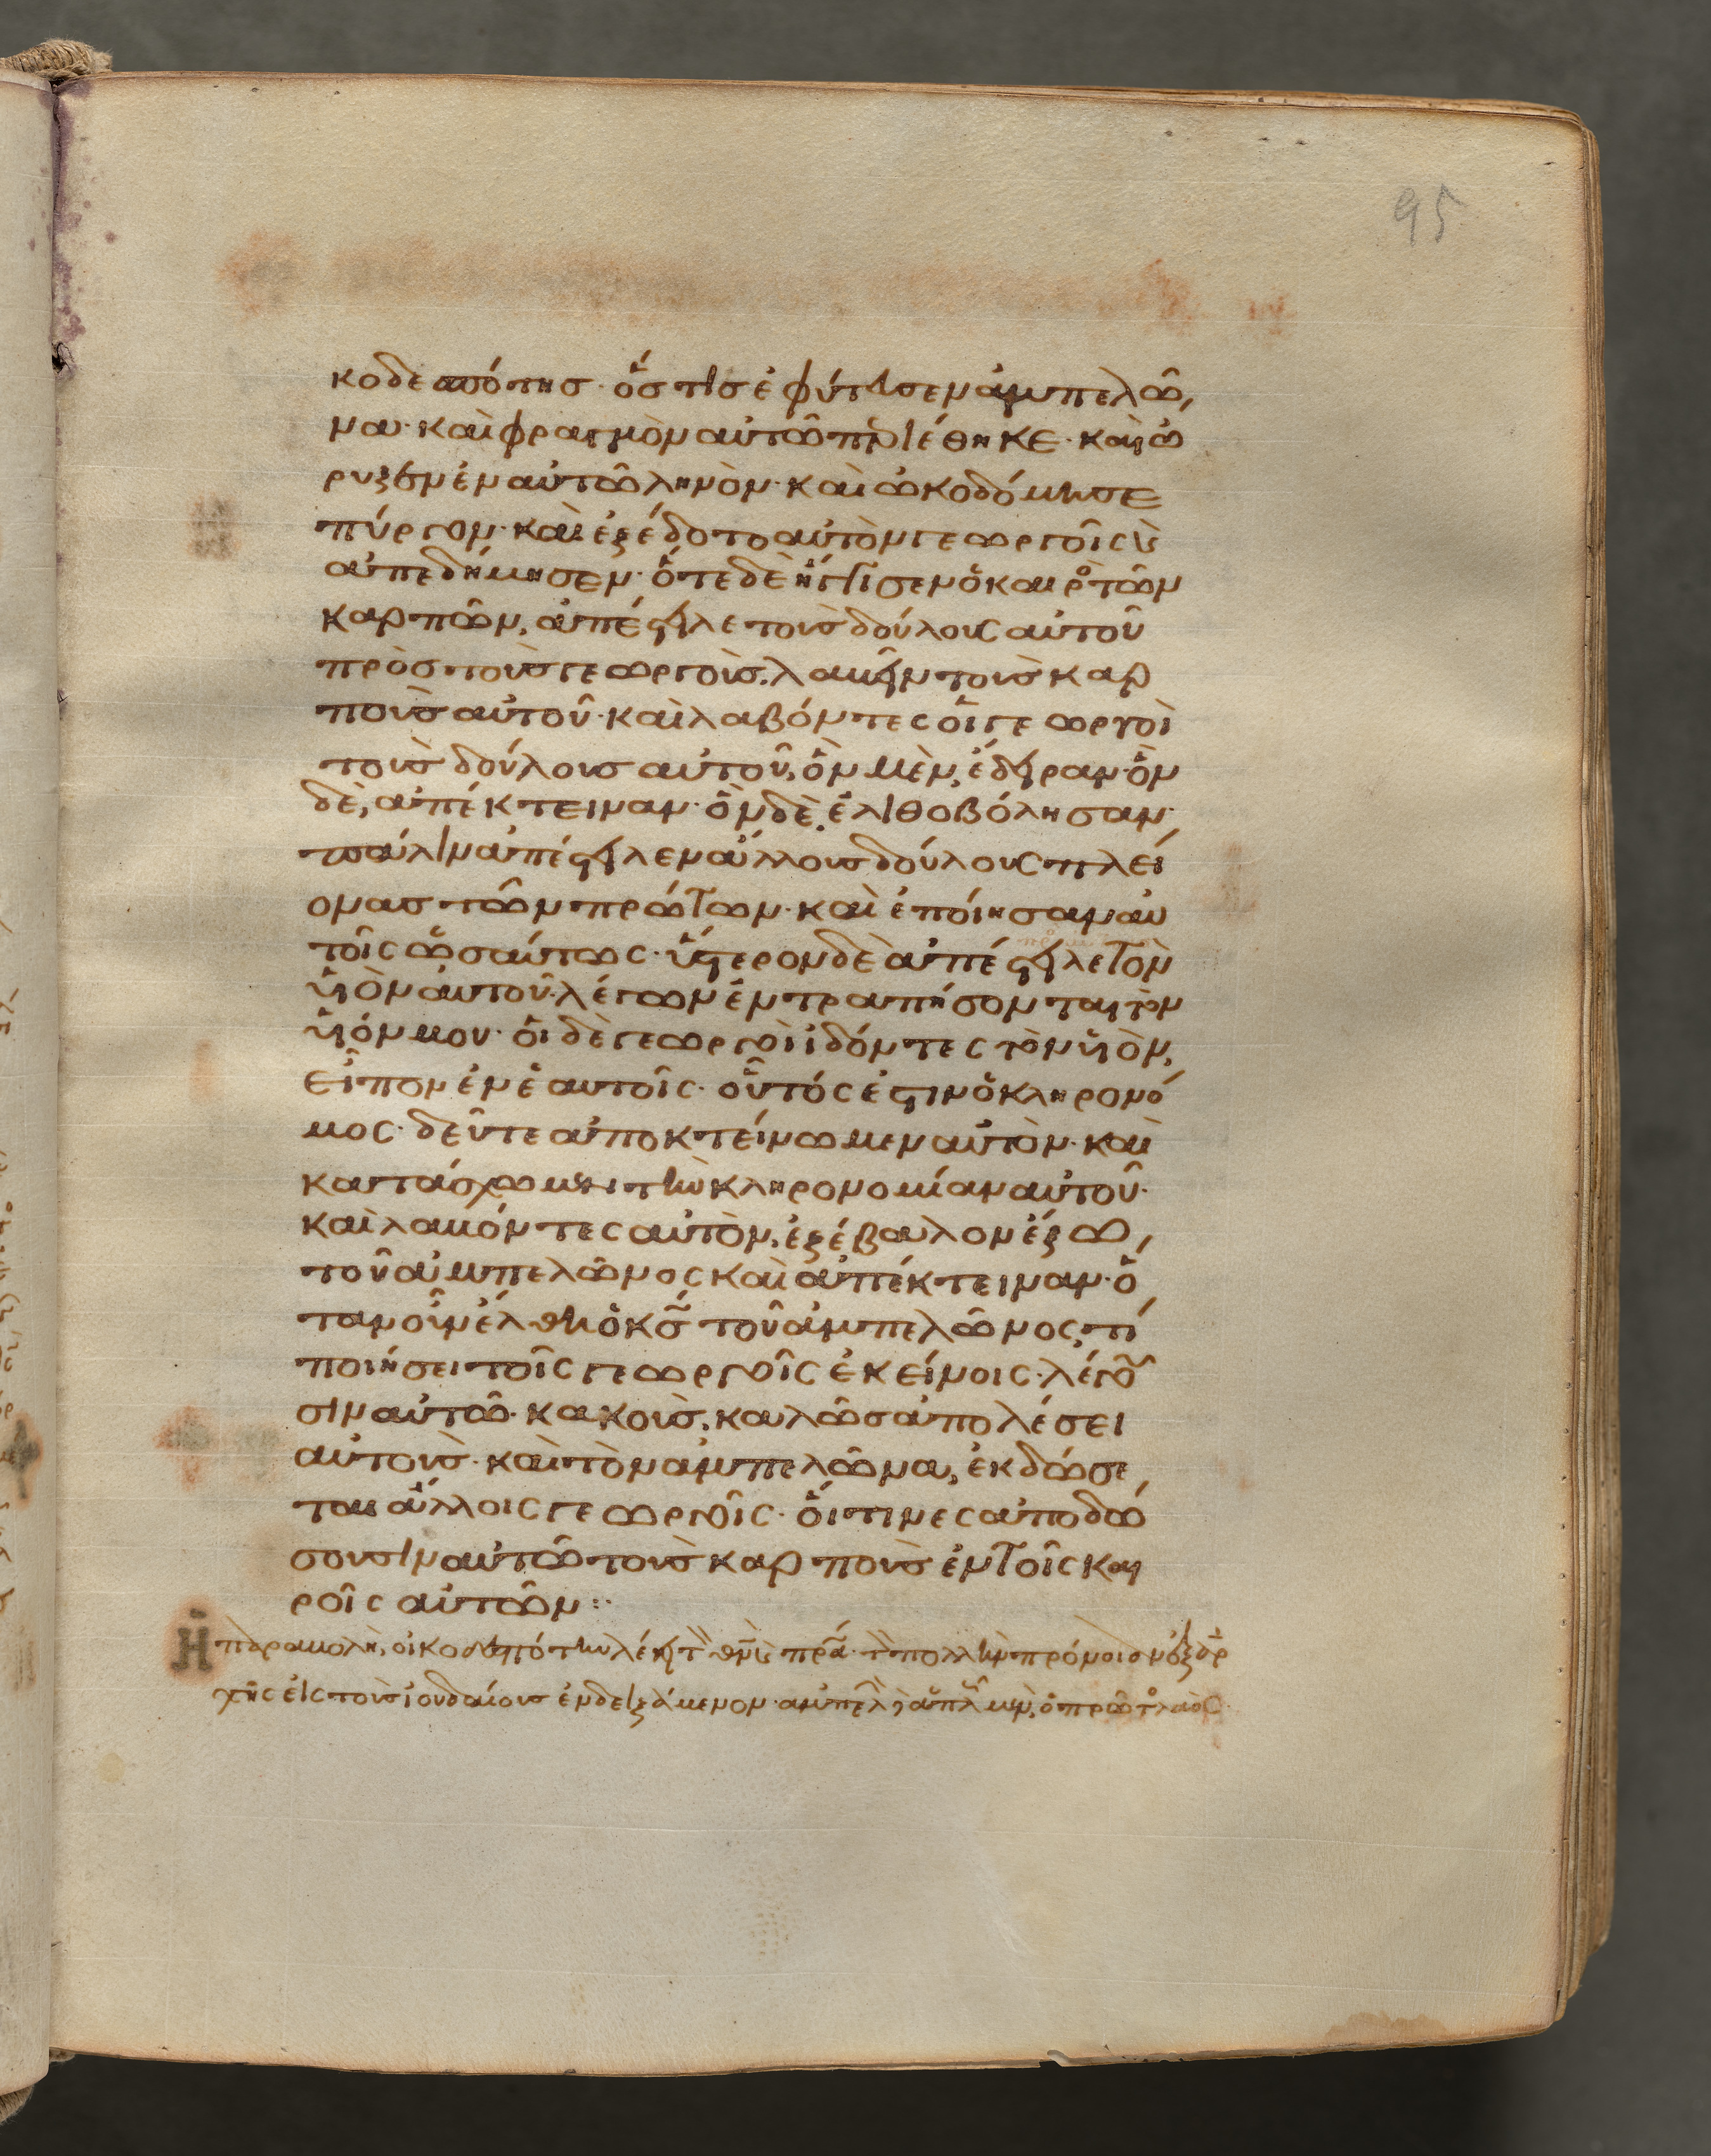 95
κοδεσπότης· ὅστις ἐφύτευσεν ἀμπελῶ
να· καὶ φραγμὸν αὐτῶ περιέθηκε· καὶ ὤ
ρυξεν ἐν αὐτῶ ληνὸν· καὶ ὠκοδόμησε
πύργον· καὶ ἐξέδοτο αὐτὸν γεωργοῖς καὶ
ἀπεδήμησεν· ὅτε δὲ ἤγγισεν ὁ καιρὸς τῶν
καρπῶν, ἀπέστειλε τοὺς δούλους αὐτοῦ
πρὸς τοὺς γεωργοὺς, λαβεῖν τοὺς καρ
ποὺς αὐτοῦ· καὶ λαβόντες οἱ γεωργοὶ
τοὺς δούλους αὐτοῦ, ὃν μὲν, ἔδειραν· ὃν
δὲ, ἀπέκτειναν· ὃν δὲ, ἐλιθοβόλησαν·
πάλιν ἀπέστειλεν ἄλλους δούλους πλεί
ονας τῶν πρώτων· καὶ ἐποίησαν αὐ
τοῖς ὡσαύτως· ὕστερον δὲ ἀπέστειλε τὸν
υἱὸν αὐτοῦ· λέγων ἐντραπήσονται τὸν
υἱόν μου· οἱ δὲ γεωργοὶ ἰδόντες τὸν υἱὸν,
εἶπον ἐν ἑαυτοῖς· οὗτός ἐστιν ὁ κληρονό
μος· δεῦτε ἀποκτείνωμεν αὐτὸν· καὶ
κατάσχωμεν τὴν κληρονομίαν αὐτοῦ·
καὶ λαβόντες αὐτὸν, ἐξέβαλον ἔξω
τοῦ ἀμπελῶνος καὶ ἀπέκτειναν· ὅ
ταν οὖν ἔλθη ὁ κς τοῦ ἀμπελῶνος, τί
ποιήσει τοῖς γεωργοῖς ἐκείνοις· λέγου
σιν αὐτῶ· κακοὺς, κακῶς ἀπολέσει
αὐτοὺς· καὶ τὸν ἀμπελῶνα, ἐκδώσε
ται ἄλλοις γεωργοῖς· οἵτινες ἀποδώ
σουσιν αὐτῶ τοὺς καρποὺς ἐν τοῖς και
ροῖς αὐτῶν:·
Ἡ παραβολὴ, οἰκοδεσπότην λέγει τὸν θν καὶ πρα· τὴν πολλὴν πρόνοιαν ἐξ ἀρ
χῆς εἰς τοὺς ἰουδαίους ἐνδειξάμενον·